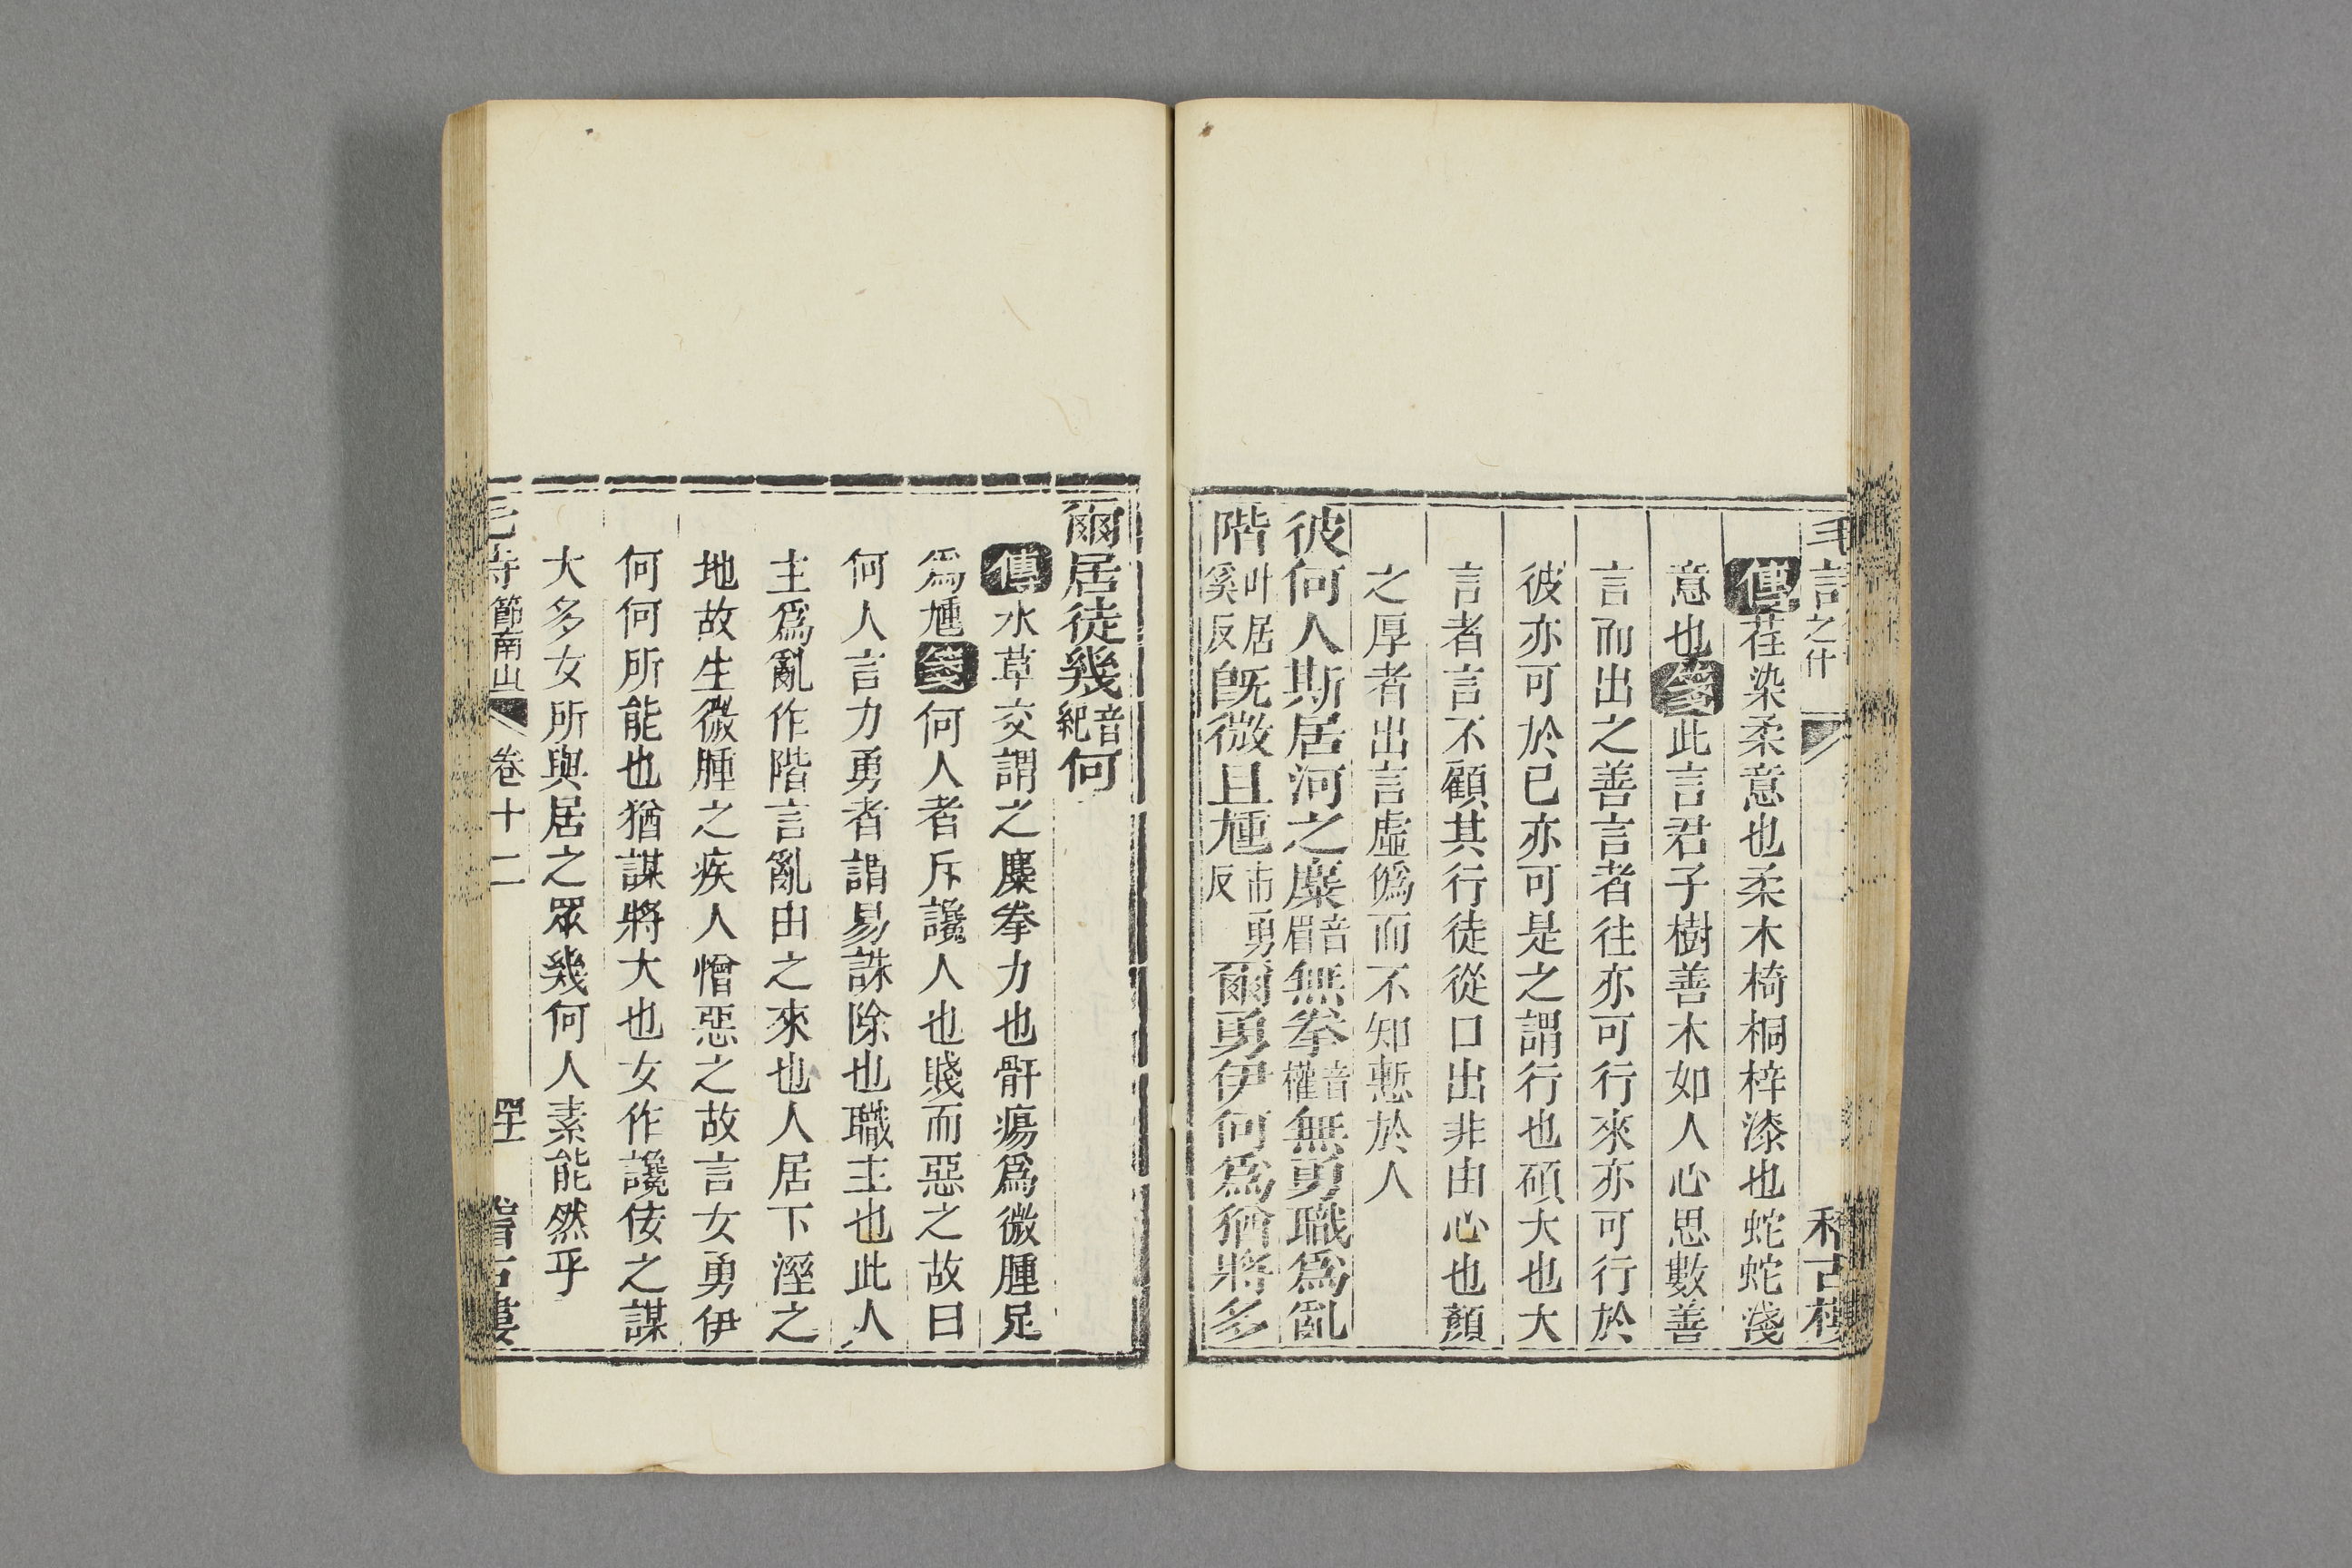 傳荏染柔意也柔木椅桐梓漆也蛇蛇淺
意也箋此言君子樹善木如人心思數善
言而出之善言者往亦可行來亦可行於
彼亦可於已亦可是之謂行也碩大也大
言者言不顧其行徒從口出非由心也顏
之厚者出言虛僞而不知慙於人
彼何人斯居河之麋音眉無拳音權無勇職爲亂
階叶居奚反旣微且尰市勇反爾勇伊何爲猶將多
爾居徒幾音紀何
傳水草交謂之麋拳力也骭瘍爲微腫足
爲尰箋何人者斥讒人也賤而惡之故曰
何人言力勇者謂易誅除也職主也此人
主爲亂作階言亂由之來也人居下溼之
地故生微腫之疾人憎惡之故言女勇伊
何何所能也猶謀將大也女作讒佞之謀
大多女所與居之眾幾何人素能然乎
節南山 卷十二